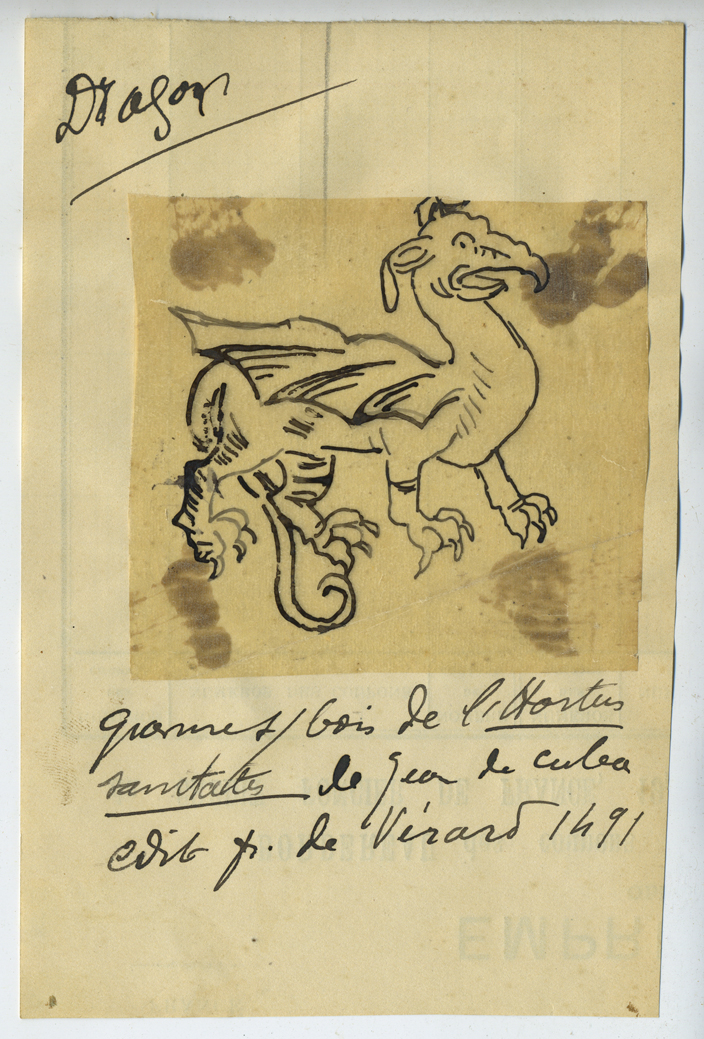 Dragon
gravure s/ bois de l'Hortus
sanitatis de Jean de Cuba
edit fr. de Vérard 1491
EMPR